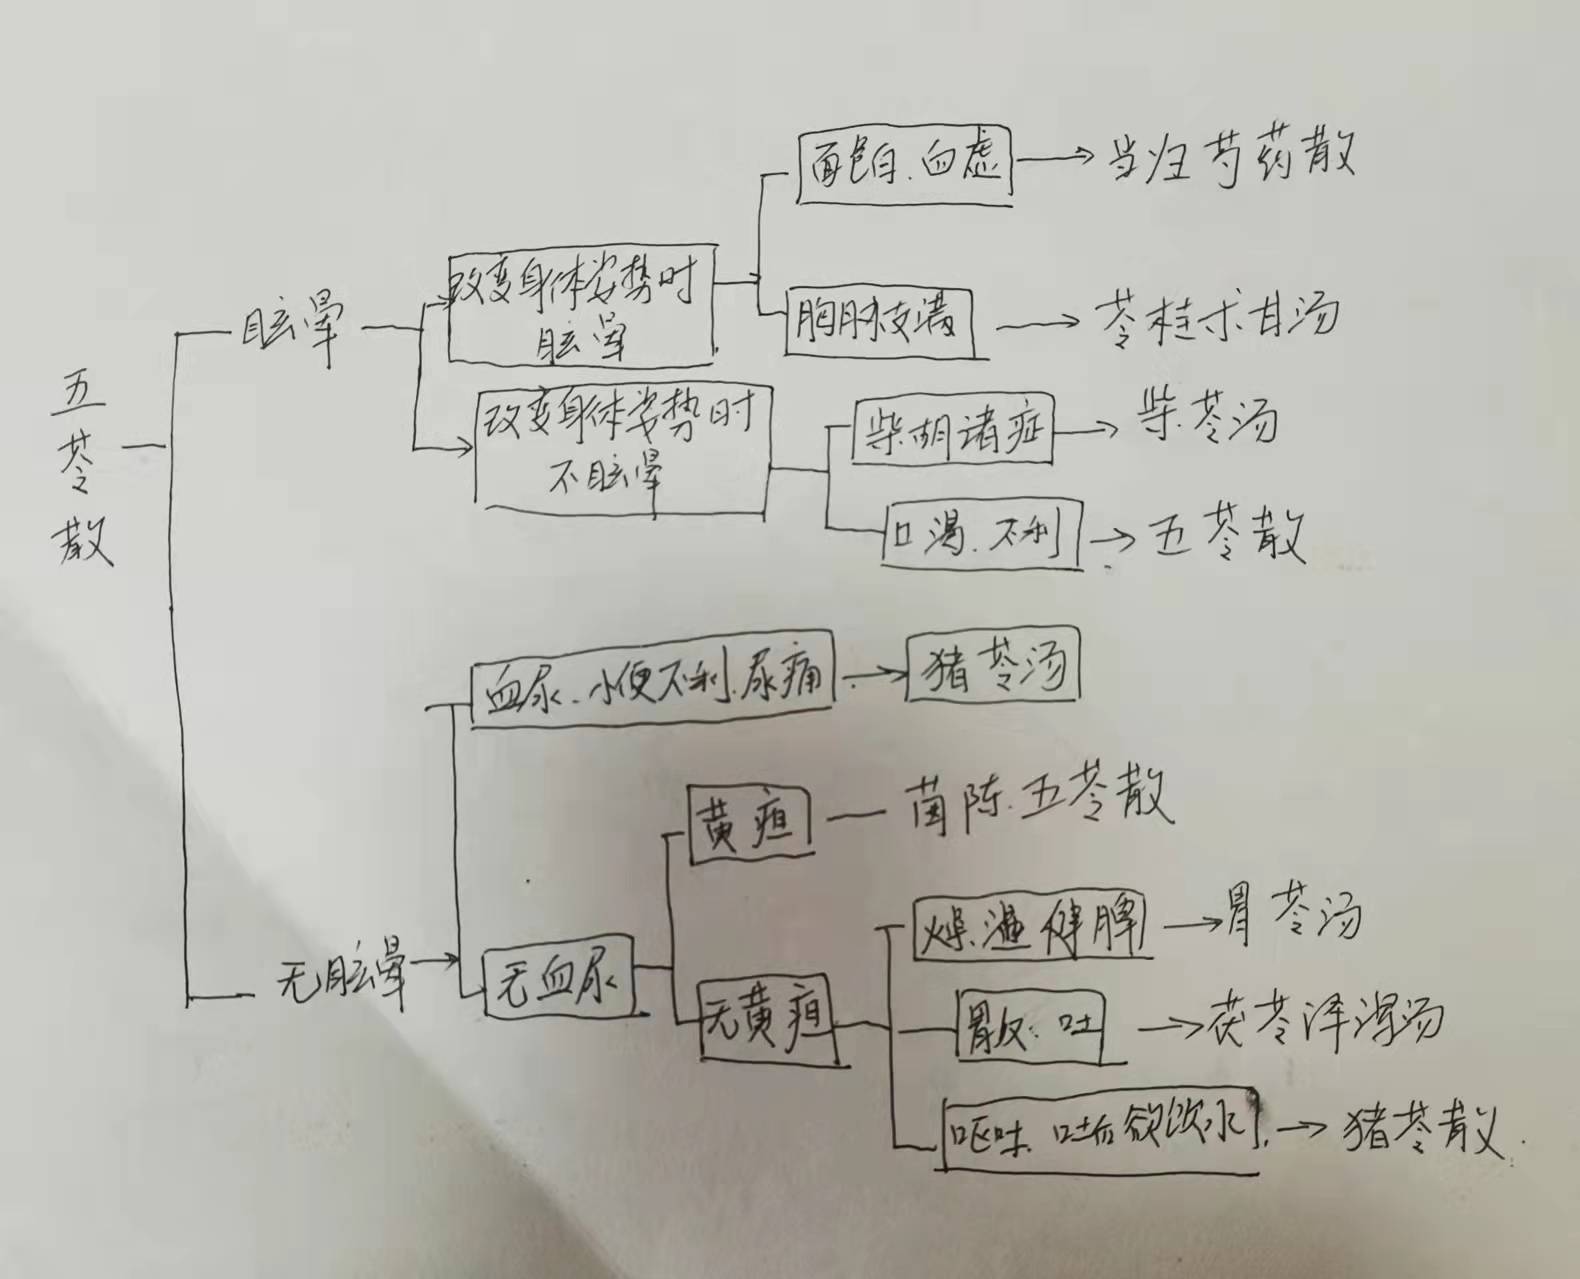 五苓散
眩晕
改变身体姿势时
眩晕
面色白.血虚
当归芍药散
胸胁支满
苓桂术甘汤
改变身体姿势时
不眩晕
柴胡诸症
柴苓汤
口渴.不利
五苓散
无眩晕
血尿.小便不利.尿痛
猪苓汤
无血尿
黄疸
茵陈.五苓散
无黄疸
燥.湿健脾
胃苓汤
胃反.吐
茯苓泽泻汤
呕吐.吐后欲饮水
猪苓散